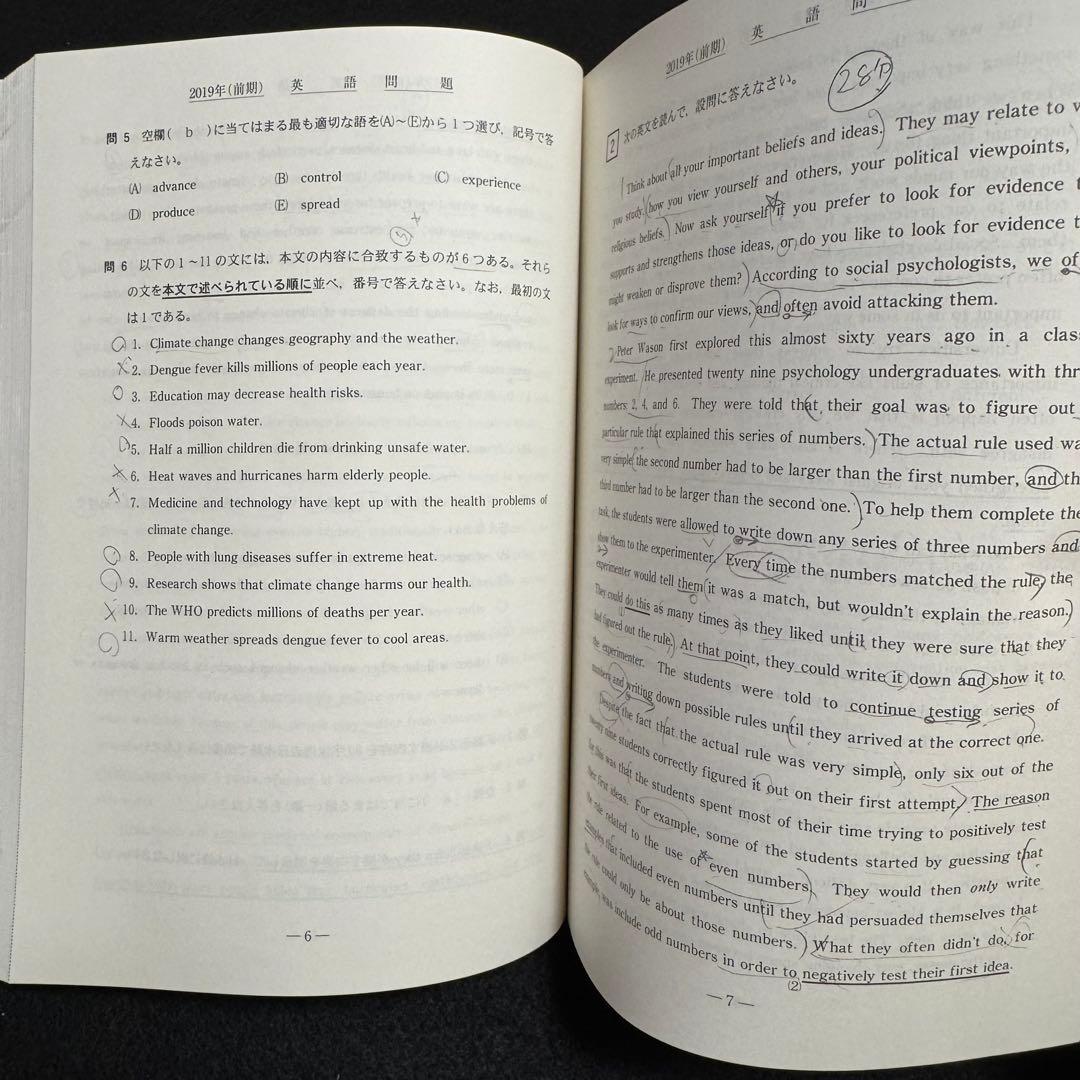 2019年(前期) 英語問題
問5 空欄( b )に当てはまる最も適切な語を(A)~(E)から1つ選び,記号で答
えなさい。
(A) advance (B) control (C) experience
(D) produce (E) spread
問6 以下の1~11の文には,本文の内容に合致するものが6つある。それら
の文を本文で述べられている順に並べ,番号で答えなさい。なお,最初の文
は1である。
1. Climate change changes geography and the weather.
2. Dengue fever kills millions of people each year.
3. Education may decrease health risks.
4. Floods poison water.
5. Half a million children die from drinking unsafe water.
6. Heat waves and hurricanes harm elderly people.
7. Medicine and technology have kept up with the health problems of
climate change.
8. People with lung diseases suffer in extreme heat.
9. Research shows that climate change harms our health.
10. The WHO predicts millions of deaths per year.
11. Warm weather spreads dengue fever to cool areas.
—6—
2019年(前期) 英語問
2 次の英文を読んで,設問に答えなさい。
Think about all your important beliefs and ideas. They may relate to
you study, how you view yourself and others, your political viewpoints,
religious beliefs. Now ask yourself if you prefer to look for evidence
supports and strengthens those ideas, or do you like to look for evidence
might weaken or disprove them? According to social psychologists, we
look for ways to confirm our views, and often avoid attacking them.
Peter Wason first explored this almost sixty years ago in a
experiment. He presented twenty nine psychology undergraduates with
numbers: 2, 4, and 6. They were told that their goal was to figure out
particular rule that explained this series of numbers. The actual rule used
very simple: the second number had to be larger than the first number, and
third number had to be larger than the second one. To help them complete
task, the students were allowed to write down any series of three numbers and
show them to the experimenter. Every time the numbers matched the rule, the
experimenter would tell them it was a match, but wouldn't explain the reason.
They could do this as many times as they liked until they were sure that they
(1)
had figured out the rule. At that point, they could write it down and show it to
the experimenter. The students were told to continue testing series of
numbers and writing down possible rules until they arrived at the correct one.
Despite the fact that the actual rule was very simple, only six out of the
twenty nine students correctly figured it out on their first attempt. The reason
for this was that the students spent most of their time trying to positively test
their first ideas. For example, some of the students started by guessing that
the rule related to the use of even numbers. They would then only write
examples that included even numbers until they had persuaded themselves that
the rule could only be about those numbers. What they often didn't do, for
example, was include odd numbers in order to negatively test their first idea.
(2)
—7—